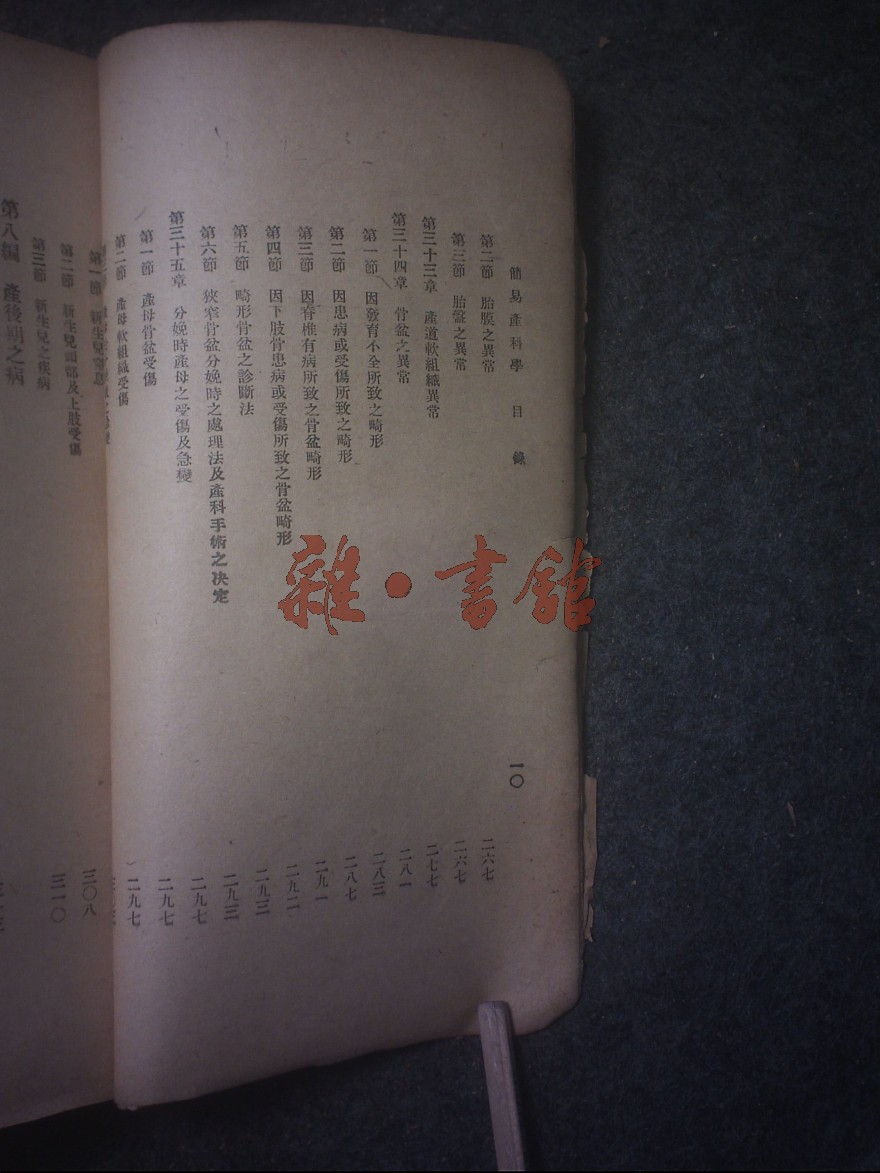 簡易產科學 目錄 一〇
第二節 胎膜之異常 二六七
第三節 胎盤之異常 二六七
第三十三章 產道軟組織異常 二七七
第三十四章 骨盆之異常 二八一
第一節 因發育不全所致之畸形 二八三
第二節 因患病或受傷所致之畸形 二八七
第三節 因脊椎有病所致之骨盆畸形 二九一
第四節 因下肢骨患病或受傷所致之骨盆畸形 二九二
第五節 畸形骨盆之診斷法 二九三
第六節 狹窄骨盆分娩時之處理法及產科手術之决定 二九三
第三十五章 分娩時產母之受傷及急變 二九七
第一節 產母骨盆受傷 二九七
第二節 產母軟組織受傷 二九七
第一節 新生兒窒息
第二節 新生兒頭部及上肢受傷 三〇八
第三節 新生兒之疾病 三一〇
第八編 產後期之病
雜·書館